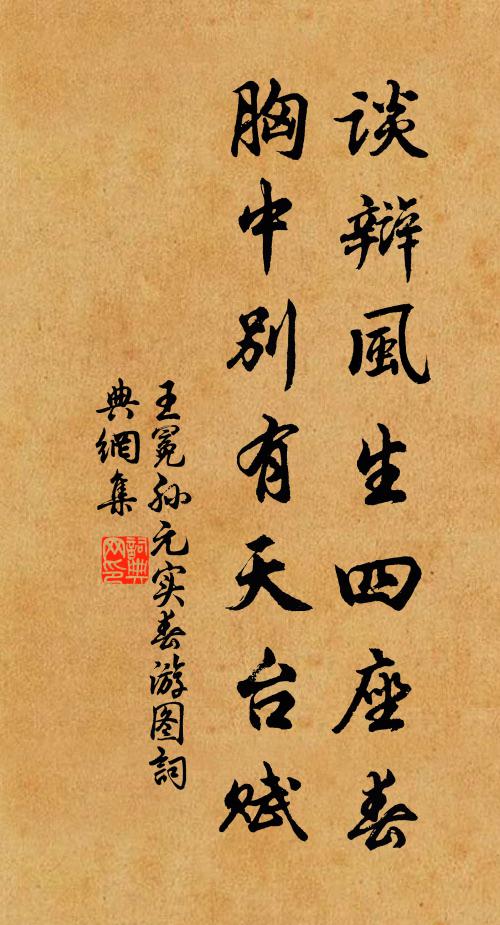 谈辩風生四座春
胸中别有天台赋
王冕孙元实春游图詞
典網集
詞典
网印